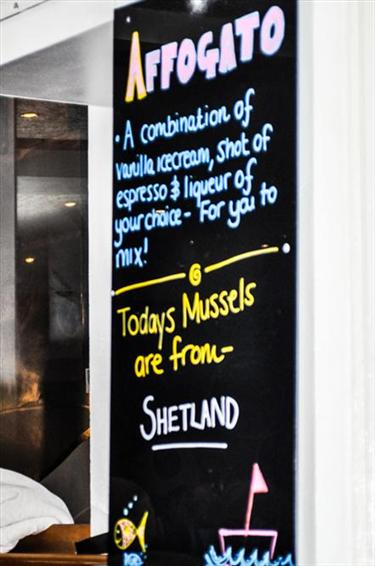 AFFOGATO
• A combination of
vanilla icecream, shot of
espresso & liqueur of
your choice - For you to
mix!
Todays Mussels
are from-
SHETLAND